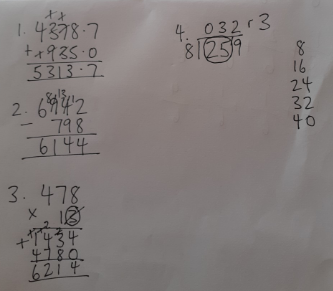 1. 4378.7
+ 935.0
5313.7
2. 6942
- 798
6144
3. 478
x 13
+ 1434
4780
6214
4. 032 r 3
8 259
8
16
24
32
40